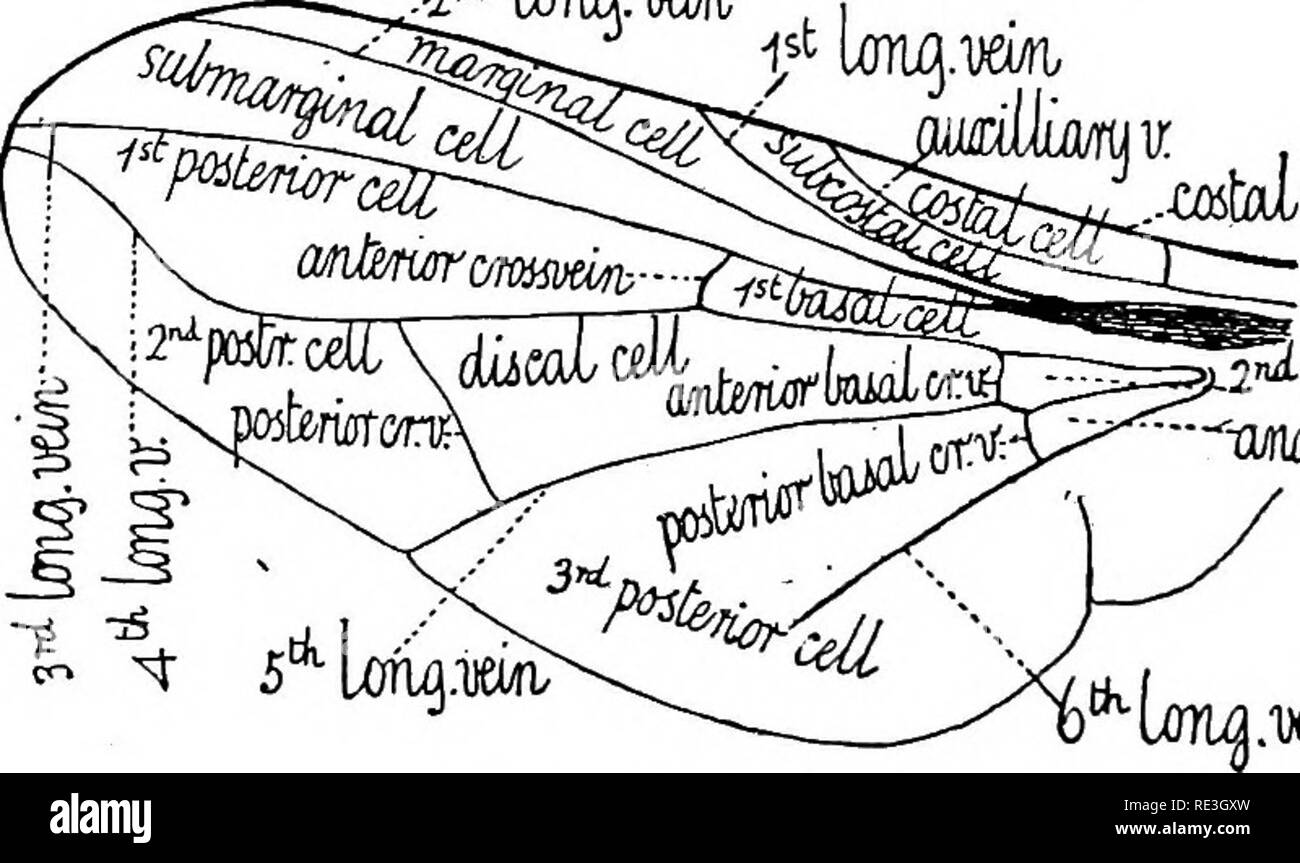 long. vein
1st long. vein
auxilliary v.
costal
marginal cell
submarginal cell
subcostal cell
costal cell
1st posterior cell
anterior crossvein
1st basal cell
2nd postr. cell
discal cell
anterior basal cr. v.
2nd
posterior cr. v.
posterior basal cr. v.
3rd long. vein
4th long. v.
5th long. vein
3rd posterior cell
6th long.
alamy
alamy
Image ID: RE3GXW
www.alamy.com